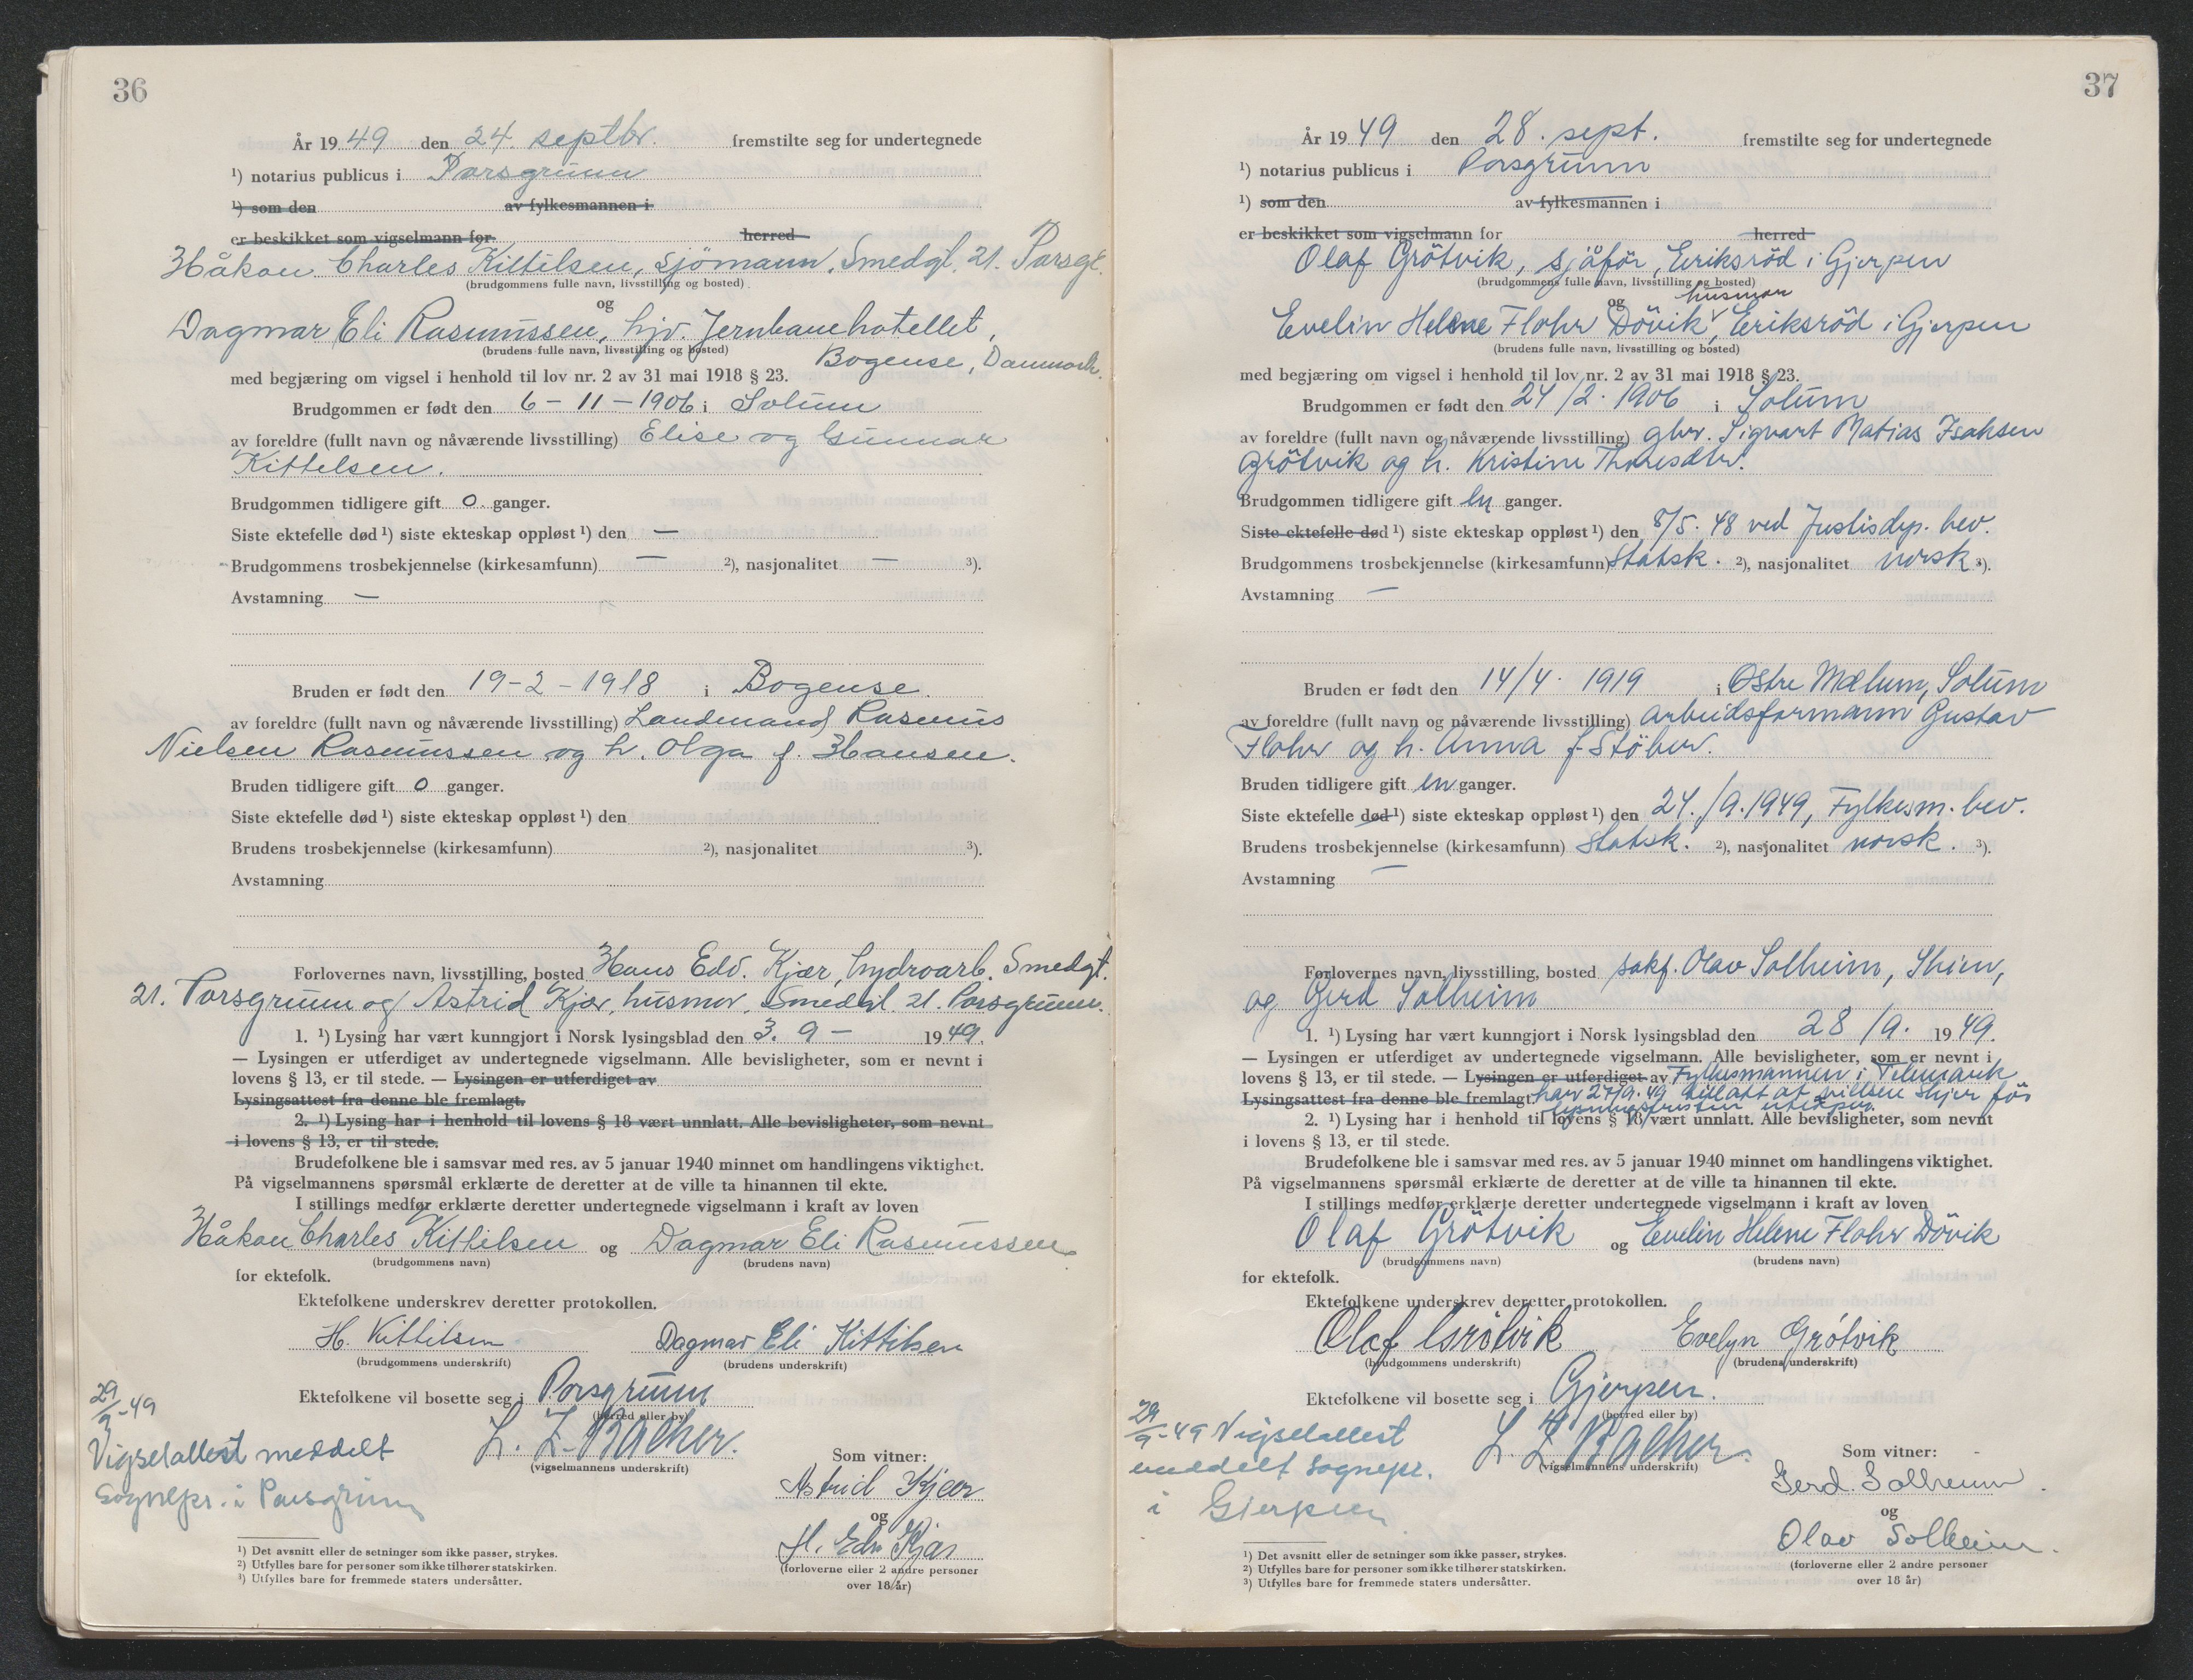 36
År 1949 den 24. septbr. fremstilte seg for undertegnede
¹) notarius publicus i Porsgrunn
¹) som den av fylkesmannen i
er beskikket som vigselmann for herred
Håkon Charles Kittilsen, sjömann, Smedgt. 21. Porsgr.
(brudgommens fulle navn, livsstilling og bosted)
og
Dagmar Eli Rasmussen, hjv. Jernbanehotellet,
(brudens fulle navn, livsstilling og bosted)
Bogense, Danmark.
med begjæring om vigsel i henhold til lov nr. 2 av 31 mai 1918 § 23.
Brudgommen er født den 6-11-1906 i Solum
av foreldre (fullt navn og nåværende livsstilling) Elise og Gunnar
Kittelsen.
Brudgommen tidligere gift 0. ganger.
Siste ektefelle død ¹) siste ekteskap oppløst ¹) den —
Brudgommens trosbekjennelse (kirkesamfunn) — ²), nasjonalitet — ³).
Avstamning —
Bruden er født den 19-2-1918 i Bogense.
av foreldre (fullt navn og nåværende livsstilling) Landmand Rasmus
Nielsen Rasmussen og h. Olga f. Hansen.
Bruden tidligere gift 0 ganger.
Siste ektefelle død ¹) siste ekteskap oppløst ¹) den
Brudens trosbekjennelse (kirkesamfunn) ²), nasjonalitet ³).
Avstamning
Forlovernes navn, livsstilling, bosted Hans Edv. Kjær, hydroarb. Smedgt.
21. Porsgrunn og Astrid Kjær, husmor, Smedgt. 21. Porsgrunn.
1. ¹) Lysing har vært kunngjort i Norsk lysingsblad den 3. 9 - 1949.
— Lysingen er utferdiget av undertegnede vigselmann. Alle bevisligheter, som er nevnt i
lovens § 13, er til stede. — Lysingen er utferdiget av
Lysingsattest fra denne ble fremlagt.
2. ¹) Lysing har i henhold til lovens § 18 vært unnlatt. Alle bevisligheter, som nevnt
i lovens § 13, er til stede.
Brudefolkene ble i samsvar med res. av 5 januar 1940 minnet om handlingens viktighet.
På vigselmannens spørsmål erklærte de deretter at de ville ta hinannen til ekte.
I stillings medfør erklærte deretter undertegnede vigselmann i kraft av loven
Håkon Charles Kittilsen og Dagmar Eli Rasmussen
(brudgommens navn) (brudens navn)
for ektefolk.
Ektefolkene underskrev deretter protokollen.
H. Kittilsen Dagmar Eli Kittilsen
(brudgommens underskrift) (brudens underskrift)
Ektefolkene vil bosette seg i Porsgrunn
(herred eller by)
29/9-49
Vigselattest meddelt
sognepr. i Porsgrunn
L. Z. Backer.
(vigselmannens underskrift)
Som vitner:
Astrid Kjær
og
H. Edv Kjær
(forloverne eller 2 andre personer
over 18 år)
¹) Det avsnitt eller de setninger som ikke passer, strykes.
²) Utfylles bare for personer som ikke tilhører statskirken.
³) Utfylles bare for fremmede staters undersåtter.
37
År 1949 den 28. sept. fremstilte seg for undertegnede
¹) notarius publicus i Porsgrunn
¹) som den av fylkesmannen i
er beskikket som vigselmann for herred
Olaf Grötvik, sjåför, Eriksröd i Gjerpen
(brudgommens fulle navn, livsstilling og bosted)
og husmor
Evelin Helene Flohr Dövik, Eriksröd i Gjerpen
(brudens fulle navn, livsstilling og bosted)
med begjæring om vigsel i henhold til lov nr. 2 av 31 mai 1918 § 23.
Brudgommen er født den 24/2. 1906 i Solum
av foreldre (fullt navn og nåværende livsstilling) gbr. Sigvart Matias Isaksen
Grötvik og h. Kristine Thoresdtr.
Brudgommen tidligere gift en ganger.
Siste ektefelle død ¹) siste ekteskap oppløst ¹) den 8/5. 48 ved Justisdep. bev.
Brudgommens trosbekjennelse (kirkesamfunn) Statsk. ²), nasjonalitet norsk ³).
Avstamning —
Bruden er født den 14/4. 1919 i Östre Mælum, Solum
av foreldre (fullt navn og nåværende livsstilling) arbeidsformann Gustav
Flohr og h. Anna f. Stöber.
Bruden tidligere gift en ganger.
Siste ektefelle død ¹) siste ekteskap oppløst ¹) den 24./9. 1949, Fylkesm. bev.
Brudens trosbekjennelse (kirkesamfunn) Statsk. ²), nasjonalitet norsk. ³).
Avstamning —
Forlovernes navn, livsstilling, bosted sakf. Olav Solheim, Skien,
og Gerd Solheim
1. ¹) Lysing har vært kunngjort i Norsk lysingsblad den 28/9. 1949.
— Lysingen er utferdiget av undertegnede vigselmann. Alle bevisligheter, som er nevnt i
lovens § 13, er til stede. — Lysingen er utferdiget av Fylkesmannen i Telemark
Lysingsattest fra denne ble fremlagt. har 27/9. 49 tillatt at vielsen skjer før
lysningsfristen utløper.
2. ¹) Lysing har i henhold til lovens § 18 vært unnlatt. Alle bevisligheter, som nevnt
i lovens § 13, er til stede.
Brudefolkene ble i samsvar med res. av 5 januar 1940 minnet om handlingens viktighet.
På vigselmannens spørsmål erklærte de deretter at de ville ta hinannen til ekte.
I stillings medfør erklærte deretter undertegnede vigselmann i kraft av loven
Olaf Grötvik og Evelin Helene Flohr Dövik
(brudgommens navn) (brudens navn)
for ektefolk.
Ektefolkene underskrev deretter protokollen.
Olaf Grötvik Evelyn Grótvik
(brudgommens underskrift) (brudens underskrift)
Ektefolkene vil bosette seg i Gjerpen.
(herred eller by)
29/9-49 Vigselattest
meddelt sognepr.
i Gjerpen
L. Z Backer.
(vigselmannens underskrift)
Som vitner:
Gerd Solheim
og
Olav Solheim.
(forloverne eller 2 andre personer
over 18 år)
¹) Det avsnitt eller de setninger som ikke passer, strykes.
²) Utfylles bare for personer som ikke tilhører statskirken.
³) Utfylles bare for fremmede staters undersåtter.